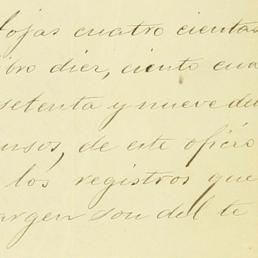 fojas cuatro cientas
bro diez, ciento cua
setenta y nueve del
nsos, de este oficio
los registros que
argen son del te